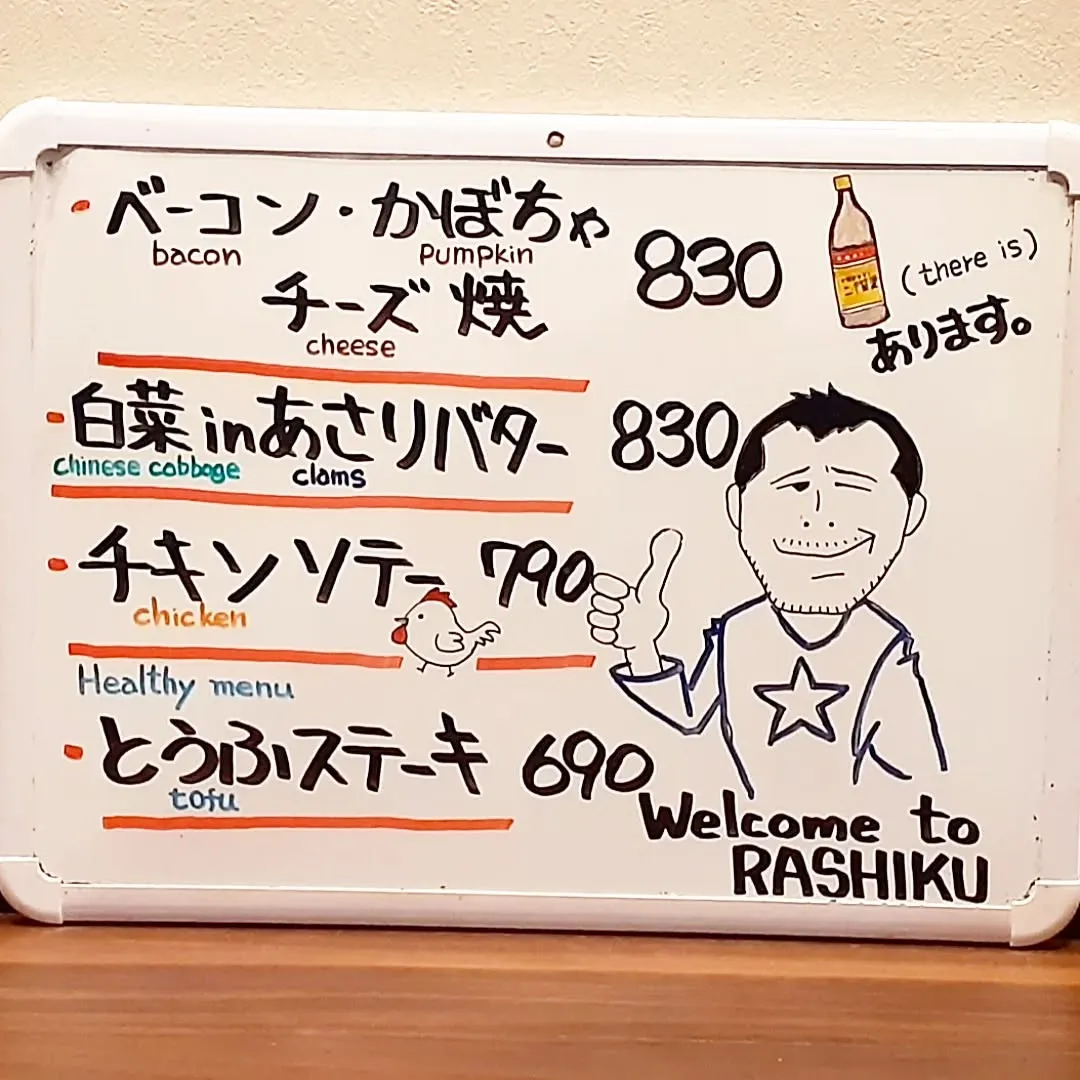 ・ベーコン・かぼちゃ 830
bacon pumpkin
チーズ焼
cheese
(there is)
あります。
・白菜inあさりバター 830
chinese cabbage clams
・チキンソテー 790
chicken
Healthy menu
・とうふステーキ 690
tofu
Welcome to
RASHIKU